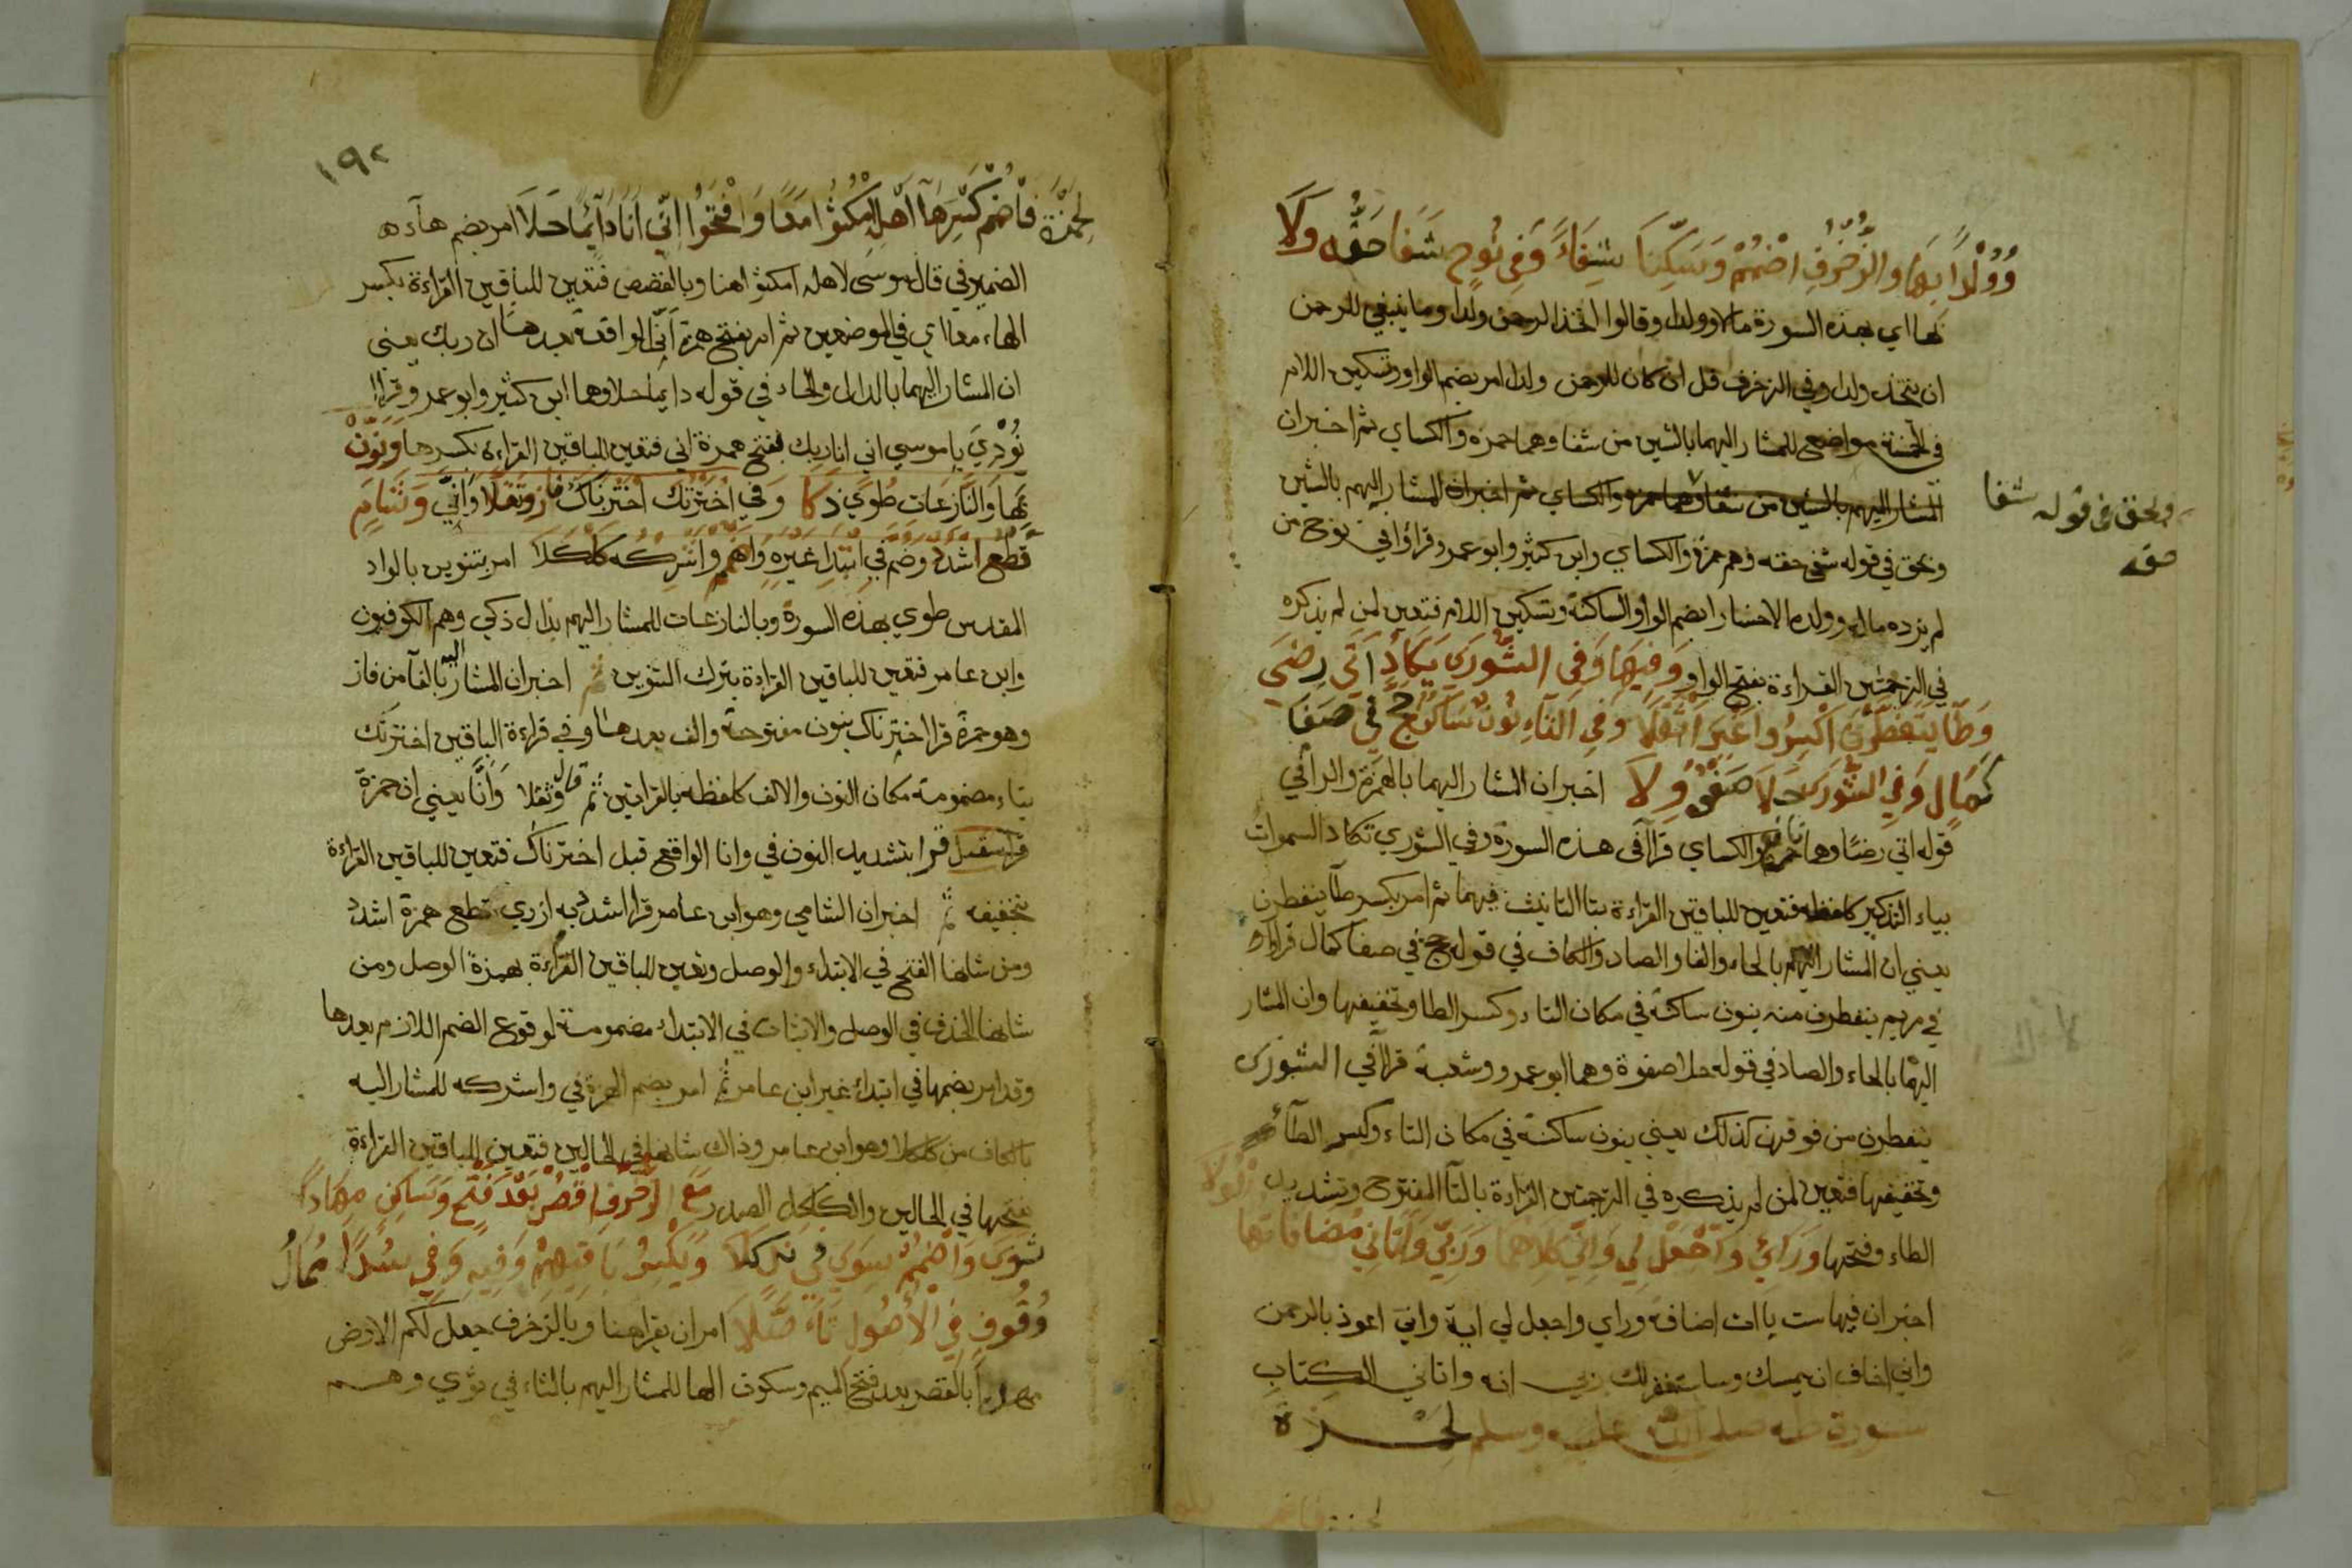 وَوُلْدًا بِهَا وَالزُّخْرُفِ اضْمُمْ وَسَكِّنَا شِفَاءً وَفِي نُوحٍ شَفَا حَقُّه وَلَا
بها اي بهذه السورة مالا وولدا وقالوا اتخذ الرحمن ولدا وما ينبغي للرحمن
ان يتخذ ولدا وفي الزخرف قل ان كان للرحمن ولدا امر بضم الواو وتسكين اللام
في الخمسة مواضع للمشار اليهما بالشين من شفا وهما حمزه والكساي ثم اخبر ان
المشار اليهما بالشين من شفا وهما حمزة والكساي ثم اخبر ان المشار اليهم بالشين
وبحق في قوله شفا حقه وهم حمزة والكساي وابن كثير وابو عمرو قرأوا في نوح من
لم يزده ماله وولده الا خسارا بضم الواو الساكنة وتسكين اللام فتعين لمن لم يذكره
في الترجمتين القراءة بفتح الواو وَفِيهَا وَفِي الشُّورَى يَكَادُ اتَى رِضَى
وَطَا يَتَفَطَّرْنَ اكْسِرُوا غَيْرَ اثْقَلَا وَفِي التَّاءِ نُونٌ سَاكِنٌ حَجَّ فِي صَفَا
كَمَالٍ وَفِي الشُّورَى حَلَا صَفْوُهُ وِلَا اخبر ان المشار اليهما بالهمزة والرا في
قوله اتى رضا وهما نافع والكساي قرآ في هذه السورة وفي الشوري تكاد السموات
بياء التذكير كلفظه فتعين للباقين القراءة بتا التانيث فيهما ثم امر بكسر طا ينفطرن
يعني ان المشار اليهم بالحاء والفا والصاد والكاف في قوله حج في صفا كمال قراوا
في مريم ينفطرن منه بنون ساكنة في مكان التاء وكسر الطا وتخفيفها وان المشار
اليهما بالحاء والصاد في قوله حلا صفوة وهما ابو عمرو وشعبة قرآ في الشورى
ينفطرن من فوقهن كذلك يعني بنون ساكنة في مكان التاء وكسر الطاء
وتخفيفها فتعين لمن لم يذكره في الترجمتين القراءة بالتا المفتوح وتشديد
الطاء وفتحها وَرَائِي وَاجْعَلْ لِي وَإِنِّي كِلَاهُمَا وَرَبِّي وَآتَانِي مُضَافَاتُهَا
اخبر ان فيها ست ياات اضافة وراي واجعل لي اية واني اعوذ بالرحمن
واني اخاف ان يمسك وساستغفر لك ربي انه واتاني الكتاب
سورة طه صلى الله عليه وسلم لحمزة
وبحق في قوله شفا
حقه
١٩٢
لِحَمْزَةَ فَاضْمُمْ كَسْرَهَا أَهْلِهِ امْكُثُوا مَعًا وَافْتَحُوا إِنِّي أَنَا دَائِمًا حَلَا امر بضم هاء
الضمير في قال موسى لاهله امكثوا هنا وبالقصص فتعين للباقين القراءة بكسر
الهاء معا اي في الموضعين ثم امر بفتح همزة اني الواقعة بعدها ان ربك يعني
ان المشار اليهما بالدال والحاء في قوله دايما حلا وهما ابن كثير وابو عمرو قراا
نُودِيَ يا موسي اني انا ربك بفتح همزة اني فتعين للباقين القراءة بكسرها وَنَوِّنْ
بِهَا وَالنَّازِعَاتِ طُوًى ذَكَا وَفِي اخْتَرْتُكَ اخْتَرْنَاكَ فَازَ وَثَقَّلَا وَانَّا وَشَامٍ
قَطْعُ اشْدُدْ وَضُمَّ فِي ابْتِدَا غَيْرِهِ وَاضْمُمْ وَاشْرِكْهُ كَلْكَلَا امر بتنوين بالواد
المقدس طوي بهذه السورة وبالنازعات للمشار اليهم بذال ذكي وهم الكوفيون
وابن عامر فتعين للباقين القراءة بترك التنوين ثم اخبر ان المشار اليه بالفا من فاز
وهو حمزة قرا اخترناك بنون مفتوحة والف بعدها وفي قراءة الباقين اخترتك
بتاء مضمومة مكان النون والالف كلفظه بالقراتين ثم قال وثقلا وَانَّا يعني ان حمزة
قرا بتشديد النون في وانا الواقع قبل اخترناك فتعين للباقين القراءة
بتخفيفه ثم اخبر ان الشامي وهو ابن عامر قرا اشدد به ازري بقطع همزة اشدد
ومن شانها الفتح في الابتداء والوصل وتعين للباقين القراءة بهمزة الوصل ومن
شانها الحذف في الوصل والاثبات في الابتداء مضمومة لوقوع الضم اللازم بعدها
وقد امر بضمها في ابتداء غير ابن عامر ثم امر بضم الهمزة في واشركه للمشار اليه
بالكاف من كلكلا وهو ابن عامر وذاك شانها في الحالين فتعين للباقين القراءة
بفتحها في الحالين والكلكل الصدر مَعَ الزُّخْرُفِ اقْصُرْ بَعْدَ فَتْحٍ وَسَاكِنٍ مِهَادًا
ثَوَى وَاضْمُمْ سِوًى فِي نَدٍ كَلَا وَيَكْسِرُ بَاقِيهِمْ وَفِيهِ وَفِي سُدًى مُمَالُ
وُقُوفٍ فِي الْأُصُولِ تَأَصَّلَا امر ان يقرا هنا وبالزخرف جعل لكم الارض
مهدا بالقصر بعد فتح الميم وسكون الها للمشار اليهم بالثاء في ثوي وهم